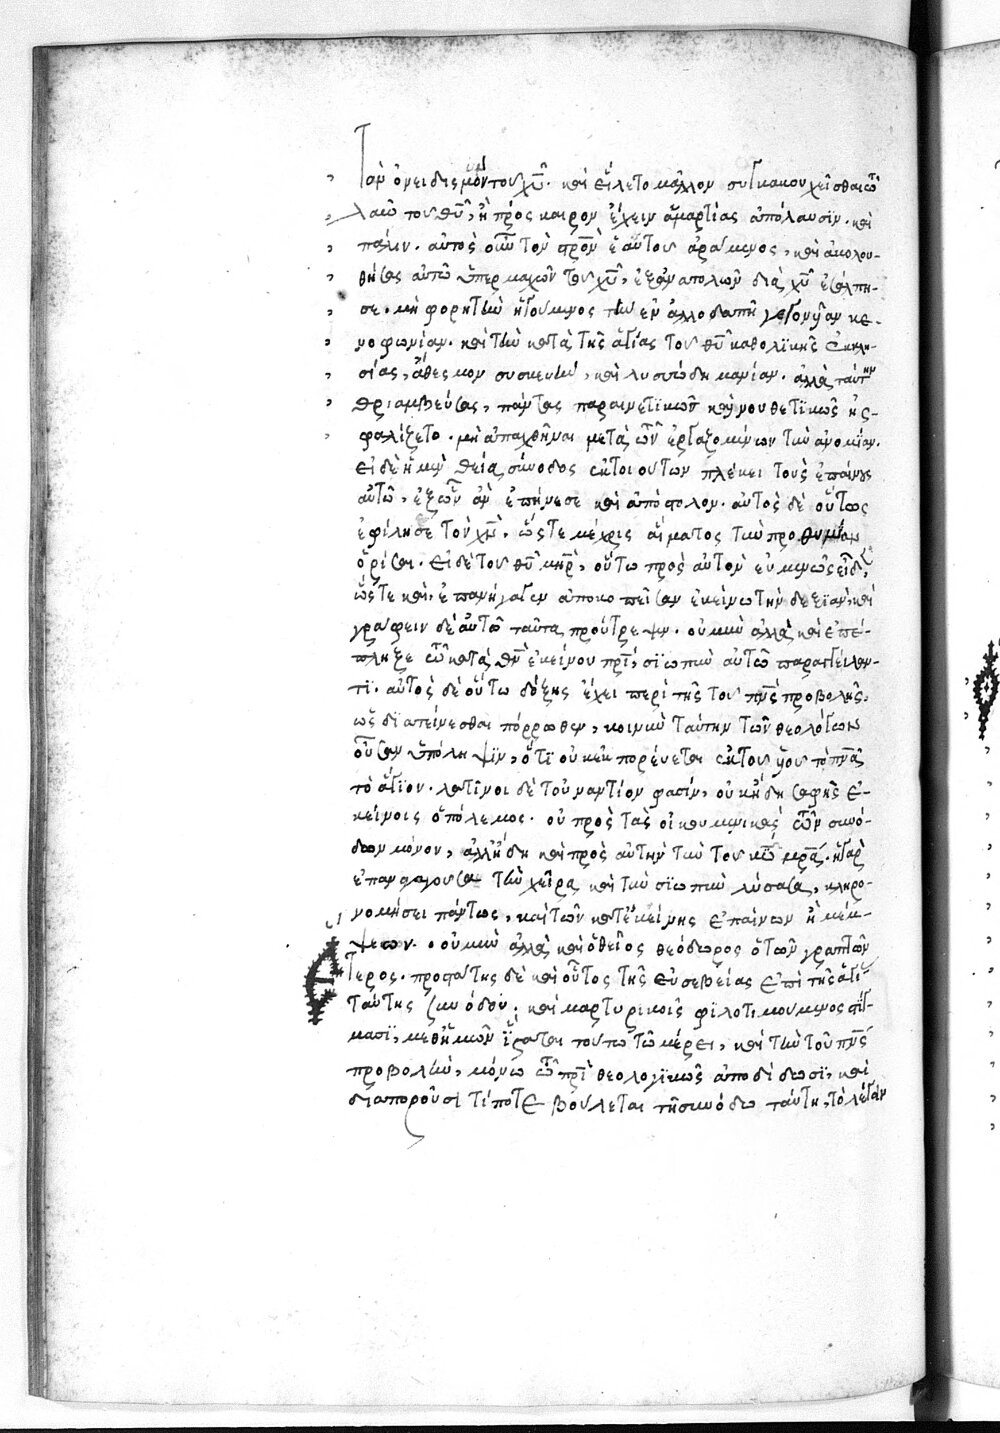 τὸν ὀνειδισμὸν τοῦ χῦ. καὶ εἵλετο μᾶλλον συγκακουχεῖσθαι τῶ
λαῶ τοῦ θῦ, ἢ πρὸς καιρὸν ἔχειν ἁμαρτίας ἀπόλαυσϊν. καὶ
πάλιν. αὐτὸς οὖν τὸν στρὸν ἑαυτοῦ ἀράμενος, καὶ ἀκολου-
θήσας αὐτῶ ὑπερμαχῶν τοῦ χῦ, διὰ χῦ
σε. μὴ φορητὴν ἡγούμενος τὴν ἐν ἀλλοδαπῆ γεγονυῖαν κε-
νοφωνίαν. καὶ τὴν κατὰ τῆς ἁγίας τοῦ θῦ καθολϊκῆς ἐκκλη-
σίας, ἄθεσμον συσκευὴν, καὶ λυσσώδη μανίαν. ἀλλὰ ταύτην
θριαμβεύσας, πάντας παραινετϊκῶς καὶ νουθετϊκῶς ἠς-
φαλίζετο. μὴ ἀπαχθῆναι μετὰ τῶν ἐργαζομένων τὴν ἀνομίαν.
εἰ δὲ ἡ μὲν θεία σύνοδος ἐκ τοιούτων πλέκει τοὺς ἐπαίνους
αὐτῶ, ἐξ ὧν ἂν ἐπήνεσε καὶ ἀπόστολον. αὐτὸς δὲ οὕτως
ἐφίλησε τὸν χν. ὥστε μέχρις αἵματος τὴν προθυμίαν
ὁρίσαι. εἰ δὲ τοῦ θῦ μηρ, οὕτω πρὸς αὐτὸν εὐμενῶς εἶδε,
ὥστε καὶ, ἐπανήγαγεν ἀποκοπεῖσαν ἐκείνω τὴν δεξϊὰν, καὶ
γράφειν δὲ αὐτῶ ταῦτα προύτρεψεν. οὐ μὴν ἀλλὰ καὶ ἐπέ-
πληξε τῶ κατὰ ἐκείνου πρϊ, σϊωπὴν αὐτῶ παραγγείλαν-
τϊ. αὐτὸς δὲ οὕτω δόξης ἔχει περὶ τῆς τοῦ πνς προβολῆς,
ὡς δϊατείνεσθαι πόρρωθεν, κοινὴν ταύτην τῶν θεολόγων
οὖσαν ὑπόληψϊν, ὅτϊ οὐκ ἐκπορεύεται ἐκ τοῦ υἱοῦ τὸ πνα
τὸ ἅγϊον. λατῖνοι δὲ τοὐναντίον φασίν, οὐκ ἤδη σαφὴς ἐ-
κείνοις ὁ πόλεμος. οὐ πρὸς τὰς οἰκουμενικὰς τῶν συνό-
δων μόνον, ἀλλ' ἤδη καὶ πρὸς αὐτὴν τὴν τοῦ κυ μρα. ἡ γὰρ
ἐπαναγαγοῦσα τὴν χεῖρα, καὶ τὴν σϊωπὴν λύσασα, κληρο-
νομήσει πάντως, καὶ τῶν κατ' ἐκείνης ἐπαίνων ἢ μέμ-
ψεων. οὐ μὴν ἀλλὰ καὶ ὁ θεῖος θεόδωρος ὁ τῶν γραπτῶν
ἕτερος. προστάτης δὲ καὶ οὗτος τῆς εὐσεβείας ἐπὶ τῆς ἁγί
ταύτης ζ συνόδου, καὶ μαρτυρικοῖς φϊλοτιμούμενος στίγ-
μασϊ, μεθ' ἡμῶν ἵσταται τούτω τῶ μέρει, καὶ τὴν τοῦ πνς
προβολὴν, μόνω τῶ πρϊ θεολογϊκῶς ἀποδίδωσϊ, καὶ
διαποροῦσϊ τί ποτε βούλεται τῆ συνόδω ταύτη, τὸ λέγειν